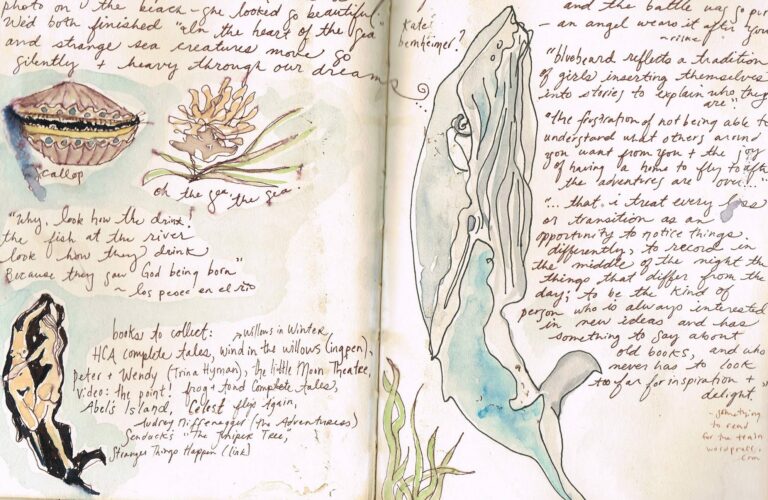 photo on the beach - she looked so beautiful.
We'd both finished "In the heart of the sea
and strange sea creatures move so
silently + heavy through our dreams
scallop
oh the sea, the sea
"Why, look how they drink.
the fish at the river
look how they drink
Because they saw God being born"
~ los peces en el rio
books to collect: > willows in Winter
HCA complete tales, wind in the willows (ingpen),
Peter + Wendy (Trina Hyman), the little Moon Theatre,
Video: the point! frog + toad Complete tales,
Abel's Island, Celest flys Again,
Audrey Niffenegger (the Adventuress)
Sendack's "The Juniper Tree,
Stranger Things Happen (link)
Kate
bernheimer?
and the battle was so
- an angel wears it after you
"bluebeard reflects a tradition
of girls inserting themselves
into stories to explain who they
are"
"the frustration of not being able to
understand what others around
you want from you + the joy
of having a home to fly to after
the adventures are over..."
"... that i treat every loss
or transition as an
opportunity to notice things
differently, to record in
the middle of the night the
things that differ from the
day; to be the kind of
person who is always interested
in new ideas and has
something to say about
old books, and who
never has to look
too far for inspiration +
delight.
- something
to read
for the train
wordpress.
com